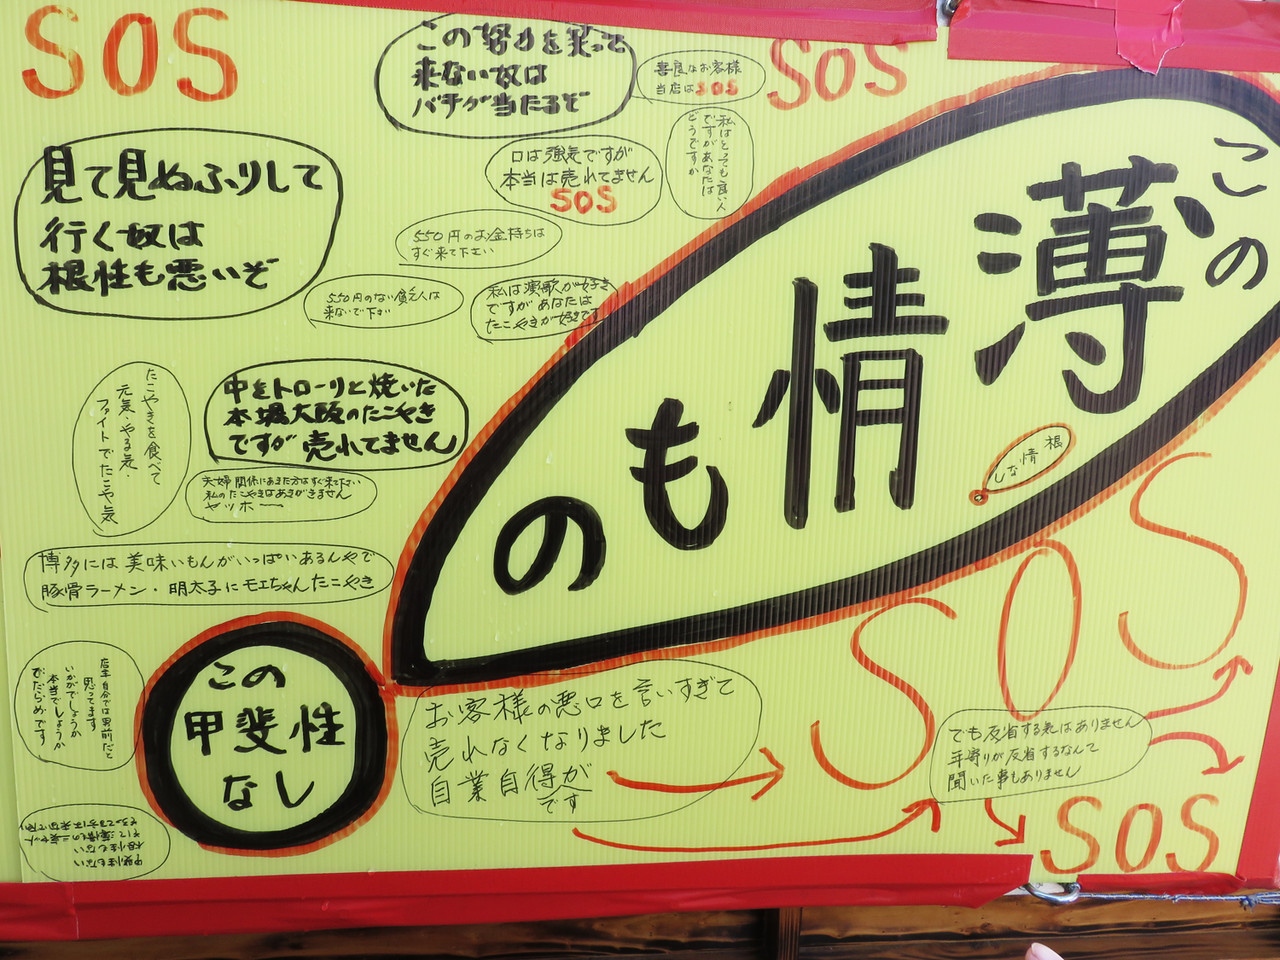 SOS
この努力を笑って
来ない奴は
バチが当たるぞ
善良なお客様
当店はSOS
SOS
私はとっても良い人
ですがあなたは
どうですか
口は強気ですが
本当は売れてません
SOS
見て見ぬふりして
行く奴は
根性も悪いぞ
550円のお金持ちは
すぐ来て下さい
550円のない貧乏人は
来ないで下さい
私は演歌が好き
ですがあなたは
たこやきが好きです
この
薄情もの
根情なし
たこやきを食べて
元気・やる気・
ファイトでたこ焼気
中をトローリと焼いた
本場大阪のたこやき
ですが売れてません
夫婦関係にあきた方はすぐ来て下さい
私のたこやきはあきがきません
ヤッホー
博多には美味いもんがいっぱいあるんやで
豚骨ラーメン・明太子にモエちゃんたこやき
店主自分では男前だと
思ってます
いかがでしょうか
本当でしょうか
でたらめです
この
甲斐性
なし
お客様の悪口を言いすぎて
売れなくなりました
自業自得が
です
SOS
でも反省する気はありません
年寄りが反省するなんて
聞いた事もありません
SOS
甲斐性もない
根性もない
そして薄情もの三点セット